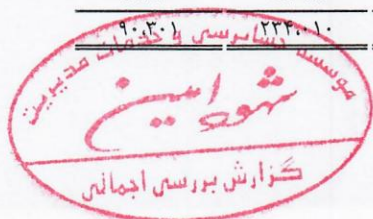 ۲۳۴،۰۱۰ ۹۰،۳۰۱
موسسه حسابرسی و خدمات مدیریت
شهود امین
گزارش بررسی اجمالی